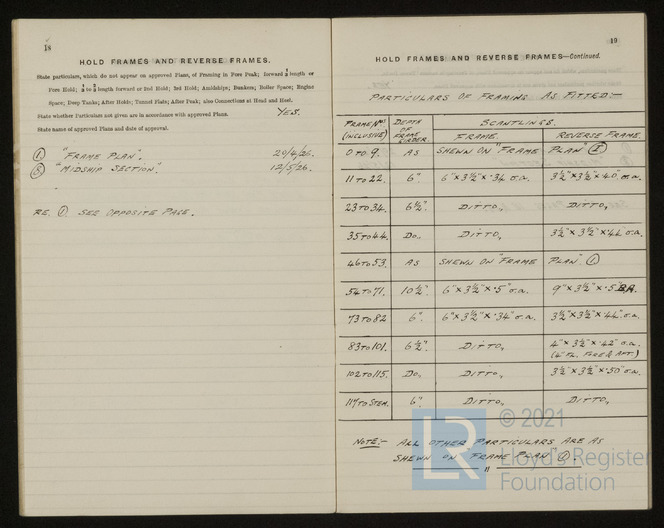 18
HOLD FRAMES AND REVERSE FRAMES.
State particulars, which do not appear on approved Plans, of Framing in Fore Peak; forward 1/5 length or
Fore Hold; 1/5 to 3/5 length forward or 2nd Hold; 3rd Hold; Amidships; Bunkers; Boiler Space; Engine
Space; Deep Tanks; After Holds; Tunnel Flats; After Peak; also Connections at Head and Heel.
State whether Particulars not given are in accordance with approved Plans. YES.
State name of approved Plans and date of approval.
① "FRAME PLAN". 20/4/26.
"MIDSHIP SECTION". 12/5/26.
RE. ①. SEE OPPOSITE PAGE.
19
HOLD FRAMES AND REVERSE FRAMES—Continued.
PARTICULARS OF FRAMING AS FITTED:—
FRAME Nos (INCLUSIVE) DEPTH OF FRAME GIRDER. SCANTLINGS.
FRAME. REVERSE FRAME.
0 TO 9. AS SHEWN ON "FRAME PLAN"
11 TO 22. 6" 6" x 3½" x .34 o.a. 3½" x 3½" x .40" o.a.
23 TO 34. 6½" DITTO, DITTO,
35 TO 44. DO., DITTO, 3½" x 3½" x .44 o.a.
46 TO 53. AS SHEWN ON "FRAME PLAN" ①
54 TO 71. 10½" 6" x 3½" x .5" o.a. 9" x 3½" x .5" B.A.
73 TO 82 6". 6" x 3½" x .34" o.a. 3½" x 3½" x .44" o.a.
83 TO 101. 6½" DITTO, 4" x 3½" x .42" o.a.
(4" FL. FORE & AFT.)
102 TO 115. DO., DITTO, 3½" x 3½" x .50" o.a.
117 TO STEM. 6". DITTO, DITTO,
NOTE:- ALL OTHER PARTICULARS ARE AS
SHEWN ON "FRAME PLAN" ①.
LR
© 2021
Lloyd's Register
Foundation